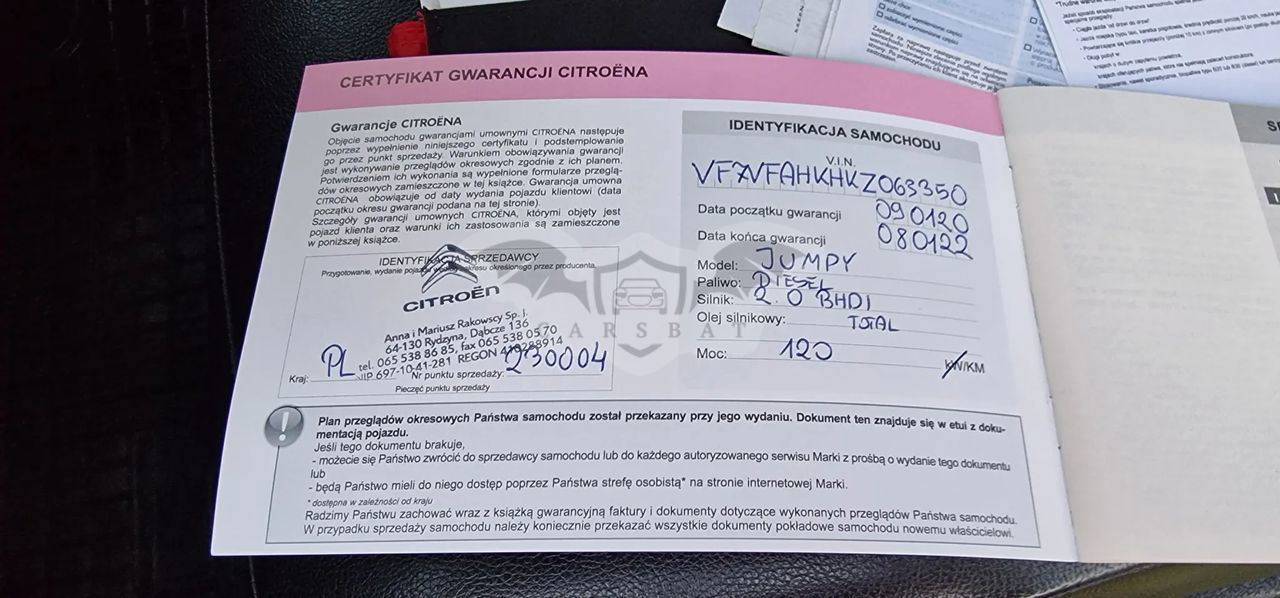 CERTYFIKAT GWARANCJI CITROËNA
Gwarancje CITROËNA
Objęcie samochodu gwarancjami umownymi CITROËNA następuje
poprzez wypełnienie niniejszego certyfikatu i podstemplowanie
go przez punkt sprzedaży. Warunkiem obowiązywania gwarancji
jest wykonywanie przeglądów okresowych zgodnie z ich planem.
Potwierdzeniem ich wykonania są wypełnione formularze przeglą-
dów okresowych zamieszczone w tej książce. Gwarancja umowna
CITROËNA obowiązuje od daty wydania pojazdu klientowi (data
początku okresu gwarancji podana na tej stronie).
Szczegóły gwarancji umownych CITROËNA, którymi objęty jest
pojazd klienta oraz warunki ich zastosowania są zamieszczone
w poniższej książce.
IDENTYFIKACJA SPRZEDAWCY
Przygotowanie, wydanie pojazdu według zakresu określonego przez producenta.
CITROËN
Anna i Mariusz Rakowscy Sp. J.
64-130 Rydzyna, Dąbcze 136
tel. 065 538 86 85, fax 065 538 05 70
NIP 697-10-41-281 REGON
Kraj: PL
Nr punktu sprzedaży: 230004
Pieczęć punktu sprzedaży
IDENTYFIKACJA SAMOCHODU
V.I.N.
VF7VFAHKHKZ063350
Data początku gwarancji 090120
Data końca gwarancji 080122
Model: JUMPY
Paliwo: DIESEL
Silnik: 2.0 BHDI
Olej silnikowy: TOTAL
Moc: 120 kW/KM
CARSBAT
Plan przeglądów okresowych Państwa samochodu został przekazany przy jego wydaniu. Dokument ten znajduje się w etui z doku-
mentacją pojazdu.
Jeśli tego dokumentu brakuje,
- możecie się Państwo zwrócić do sprzedawcy samochodu lub do każdego autoryzowanego serwisu Marki z prośbą o wydanie tego dokumentu
lub
- będą Państwo mieli do niego dostęp poprzez Państwa strefę osobistą* na stronie internetowej Marki.
* dostępna w zależności od kraju
Radzimy Państwu zachować wraz z książką gwarancyjną faktury i dokumenty dotyczące wykonanych przeglądów Państwa samochodu.
W przypadku sprzedaży samochodu należy koniecznie przekazać wszystkie dokumenty pokładowe samochodu nowemu właścicielowi.